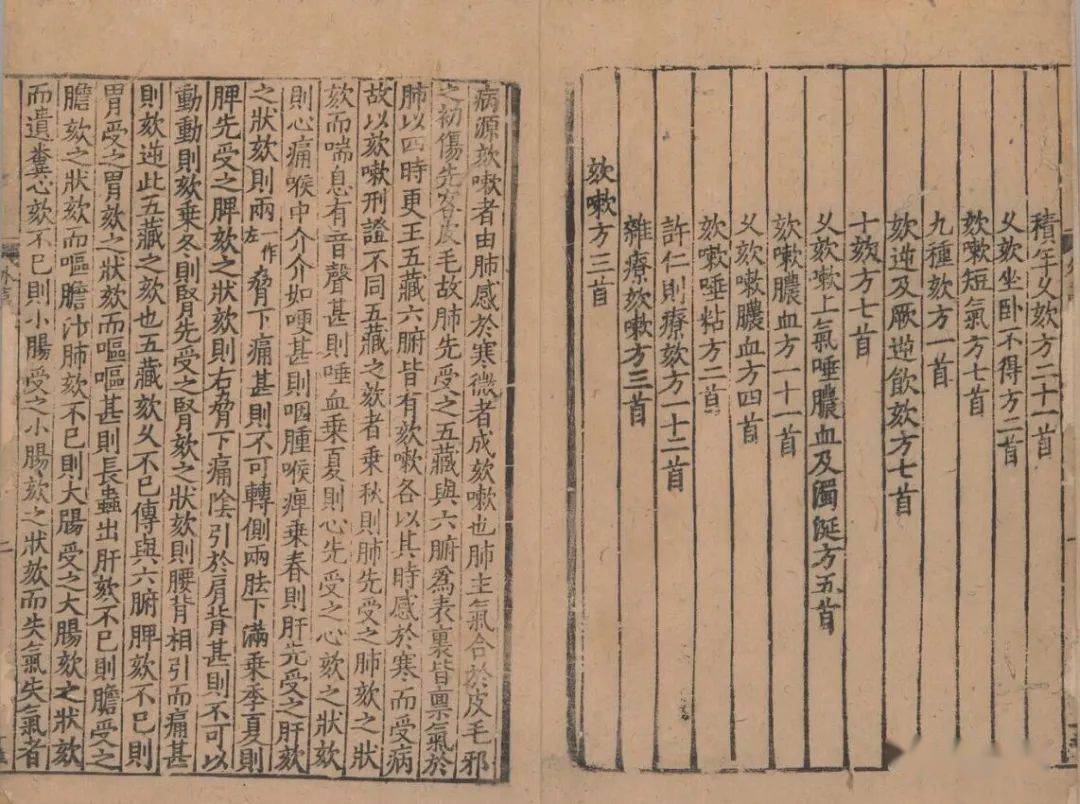 積年久欬方二十一首
久欬坐卧不得方二首
欬嗽短氣方七首
九種欬方一首
欬逆及厥逆飲欬方七首
十欬方七首
久欬嗽上氣唾膿血及濁涎方五首
欬嗽膿血方一十一首
久欬嗽膿血方四首
欬嗽唾粘方二首
許仁則療欬方一十二首
雜療欬嗽方三首
欬嗽方三首
病源欬嗽者由肺感於寒微者成欬嗽也肺主氣合於皮毛邪
之初傷先客皮毛故肺先受之五藏與六腑為表裏皆禀氣於
肺以四時更王五藏六腑皆有欬嗽各以其時感於寒而受病
故以欬嗽刑證不同五藏之欬者乘秋則肺先受之肺欬之狀
欬而喘息有音聲甚則唾血乘夏則心先受之心欬之狀欬
則心痛喉中介介如哽甚則咽腫喉痺乘春則肝先受之肝欬
之狀欬則兩一作左脅下痛甚則不可轉側兩胠下滿乘季夏則
脾先受之脾欬之狀欬則右脅下痛陰引於肩背甚則不可以
動動則欬乘冬則腎先受之腎欬之狀欬則腰背相引而痛甚
則欬逆此五藏之欬也五藏欬久不已傳與六腑脾欬不已則
胃受之胃欬之狀欬而嘔嘔甚則長蟲出肝欬不已則膽受之
膽欬之狀欬而嘔膽汁肺欬不已則大腸受之大腸欬之狀欬
而遺糞心欬不已則小腸受之小腸欬之狀欬而失氣失氣者